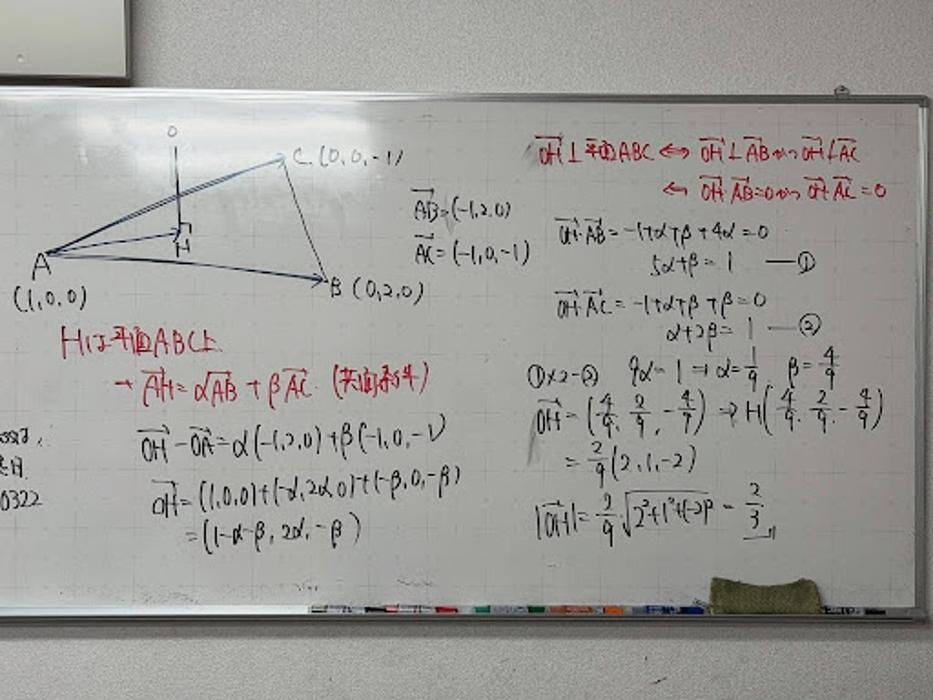 O
C (0,0,-1)
A
(1,0,0)
H
B (0,2,0)
AB→=(-1,2,0)
AC→=(-1,0,-1)
Hは平面ABC上
→ AH→=αAB→+βAC→ (共面条件)
OH→-OA→=α(-1,2,0)+β(-1,0,-1)
OH→=(1,0,0)+(-α,2α,0)+(-β,0,-β)
=(1-α-β, 2α, -β)
0322
OH→⊥平面ABC ⟷ OH→⊥AB→かつOH→⊥AC→
⟷ OH→·AB→=0かつOH→·AC→=0
OH→·AB→=-1+α+β+4α=0
5α+β=1 —①
OH→·AC→=-1+α+β+β=0
α+2β=1 —②
①×2-② 9α=1→α=1/9 β=4/9
OH→=(4/9, 2/9, -4/9) → H(4/9, 2/9, -4/9)
=2/9(2,1,-2)
|OH→|=2/9√2²+1²+(-2)²=2/3